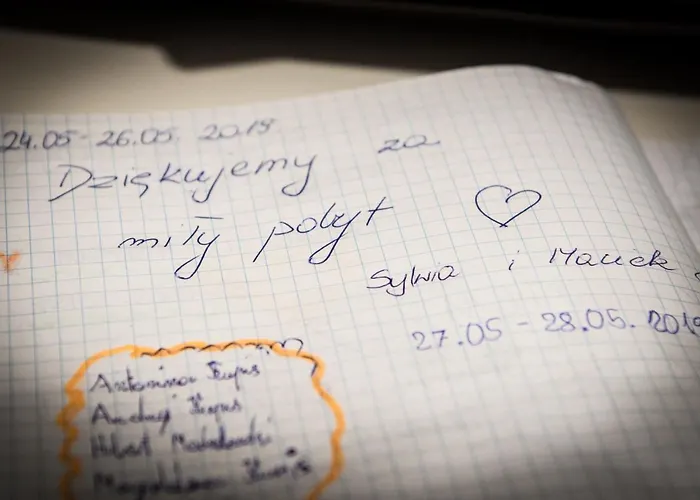 24.05-26.05. 2019
Dziękujemy za
miły pobyt
Sylwia i Maciek
27.05-28.05. 2019
Antonina
Andrzej